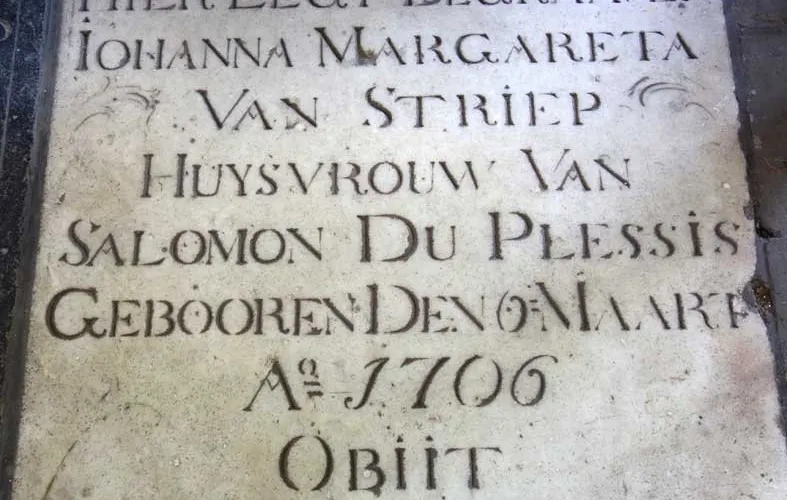 HIER LEGT
IOHANNA MARGARETA
VAN STRIEP
HUYSVROUW VAN
SALOMON DU PLESSIS
GEBOOREN DEN MAART
Aº 1706
OBIIT